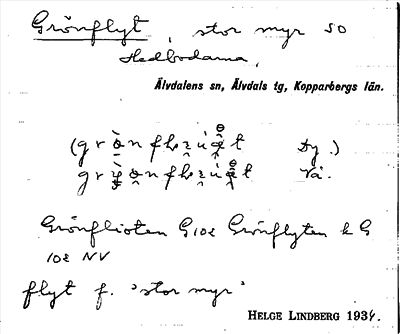 Grönflyt, stor myr SO
Hedbodarna,
Älvdalens sn, Älvdals tg, Kopparbergs län.
Dy.)
Vå.
Grönflioten G 102 Grönflyten k G
102 NV
flyt f. 'stor myr'
HELGE LINDBERG 1934.